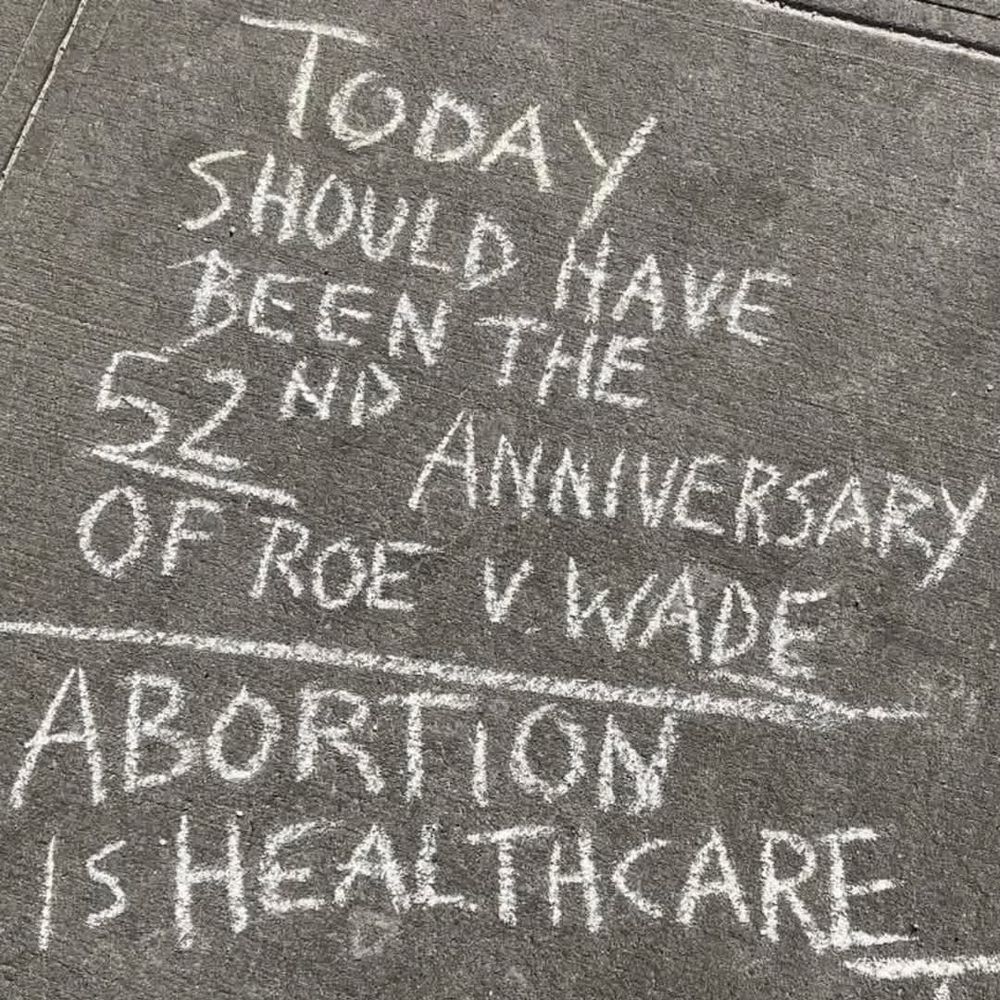 TODAY
SHOULD HAVE
BEEN THE
52ND ANNIVERSARY
OF ROE V. WADE
ABORTION
IS HEALTHCARE